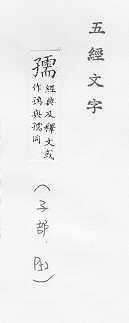 五經文字
孺
經典及釋文或
作與孺同
(子部,